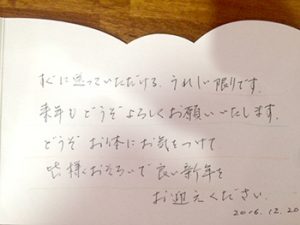 すぐに送っていただける、うれしい限りです。
来年もどうぞよろしくお願いいたします。
どうぞ お体にお気をつけて
皆様おそろいで良い新年を
お迎えください。
2016.12.20